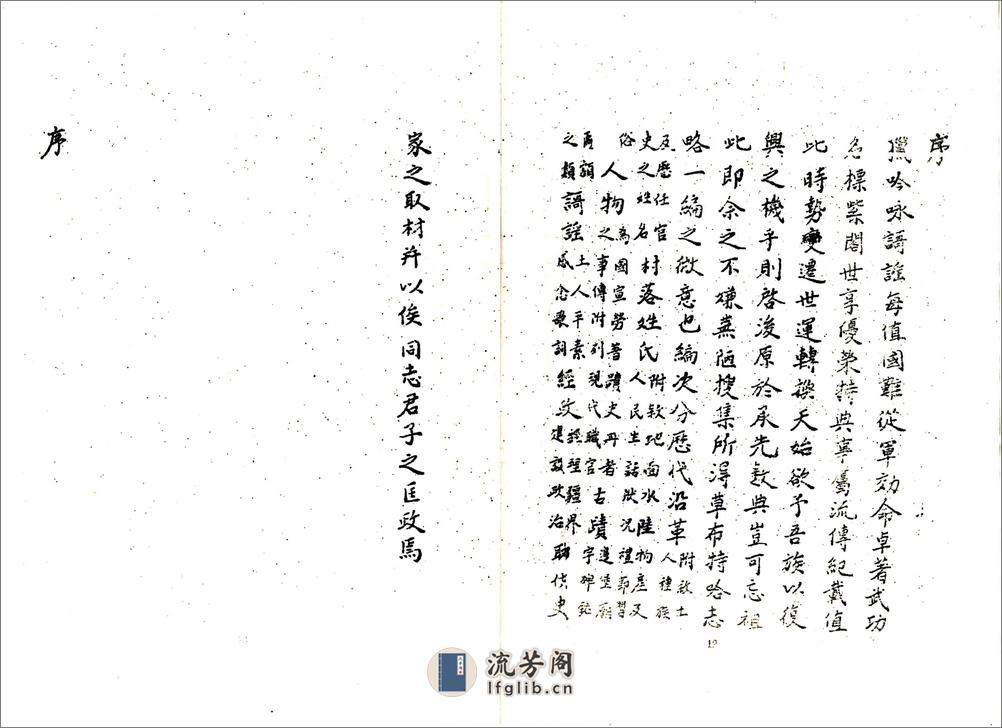 序
獵吟咏謌謠每值國難從軍効命卓著武功
名標紫閣世享優榮特典寧屬流傳紀載值
此時勢變遷世運轉換天始欲予吾族以復
興之機乎則啓浚原於承先數典豈可忘祖
此即余之不嫌蕪陋搜集所得草布特哈志
略一編之微意也編次分歷代沿革附敘土人種族
及歷任官史之姓名村落姓氏附敘地面水陸物產及人民生活狀況禮節習
俗人物為國宣勞著蹟史冊者之事傳附列現代職官古蹟遺墟廟宇碑銘
匾額之類謌謠土人平素感念歌詞經政經理疆界建設政治聊供史
家之取材幷以俟同志君子之匡政焉
序
19
流芳阁
lfglib.cn